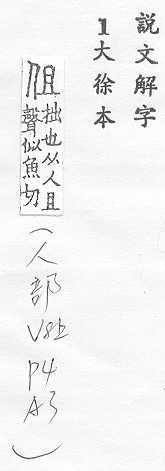 說文解字
1大徐本
伹拙也从人且
聲似魚切
(人部
V8上
P4
A3
)